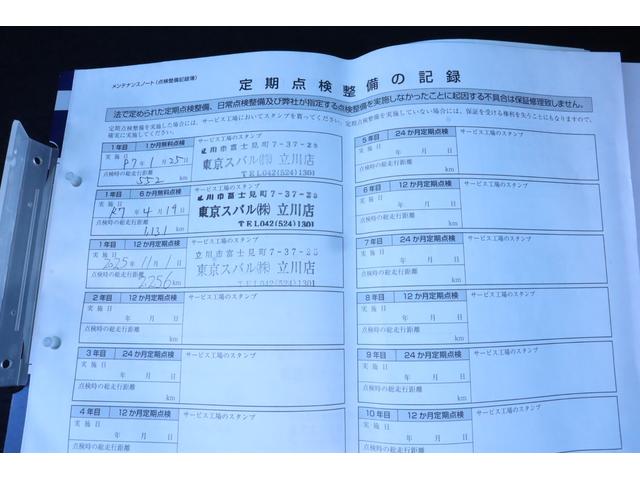 メンテナンスノート(点検整備記録簿)
定期点検整備の記録
法で定められた定期点検整備、日常点検整備及び弊社が指定する点検整備を実施しなかったことに起因する不具合は保証修理致しません。
定期点検整備を実施した場合には、サービス工場においてスタンプを貰ってください。定期点検整備を実施していない場合には、保証を受ける権利を失うこともありますので、
確実に実施してください。
1年目 1か月無料点検 サービス工場のスタンプ
実施日 R7年1月25日
点検時の総走行距離
552 km
立川市富士見町7-37-28
東京スバル(株) 立川店
TEL042(524)1301
1年目 6か月無料点検 サービス工場のスタンプ
実施日
R7年4月19日
点検時の総走行距離
1,131 km
立川市富士見町7-37-28
東京スバル(株) 立川店
TEL042(524)1301
1年目 12か月定期点検 サービス工場のスタンプ
実施日
2025年11月1日
点検時の総走行距離
2,256 km
立川市富士見町7-37-28
東京スバル(株) 立川店
TEL042(524)1301
2年目 12か月定期点検 サービス工場のスタンプ
実施日
年 月 日
点検時の総走行距離
km
3年目 24か月定期点検 サービス工場のスタンプ
実施日
年 月 日
点検時の総走行距離
km
4年目 12か月定期点検 サービス工場のスタンプ
実施日
年 月 日
点検時の総走行距離
km
5年目 24か月定期点検 サービス工場のスタンプ
実施日
年 月 日
点検時の総走行距離
km
6年目 12か月定期点検 サービス工場のスタンプ
実施日
年 月 日
点検時の総走行距離
km
7年目 24か月定期点検 サービス工場のスタンプ
実施日
年 月 日
点検時の総走行距離
km
8年目 12か月定期点検 サービス工場のスタンプ
実施日
年 月 日
点検時の総走行距離
km
9年目 24か月定期点検 サービス工場のスタンプ
実施日
年 月 日
点検時の総走行距離
km
10年目 12か月定期点検 サービス工場のスタンプ
実施日
年 月 日
点検時の総走行距離
km